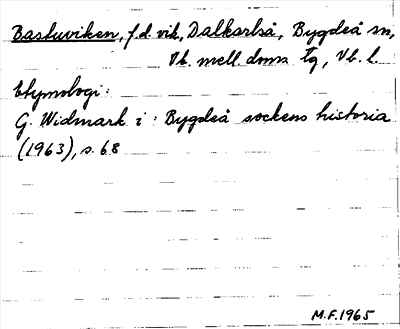 Bastuviken, f.d. vik, Dalkarlså, Bygdeå sn,
Vb. mell. doms. tg, Vb. l.
Etymologi:
G. Widmark i: Bygdeå sockens historia
(1963), s. 68
M.F. 1965